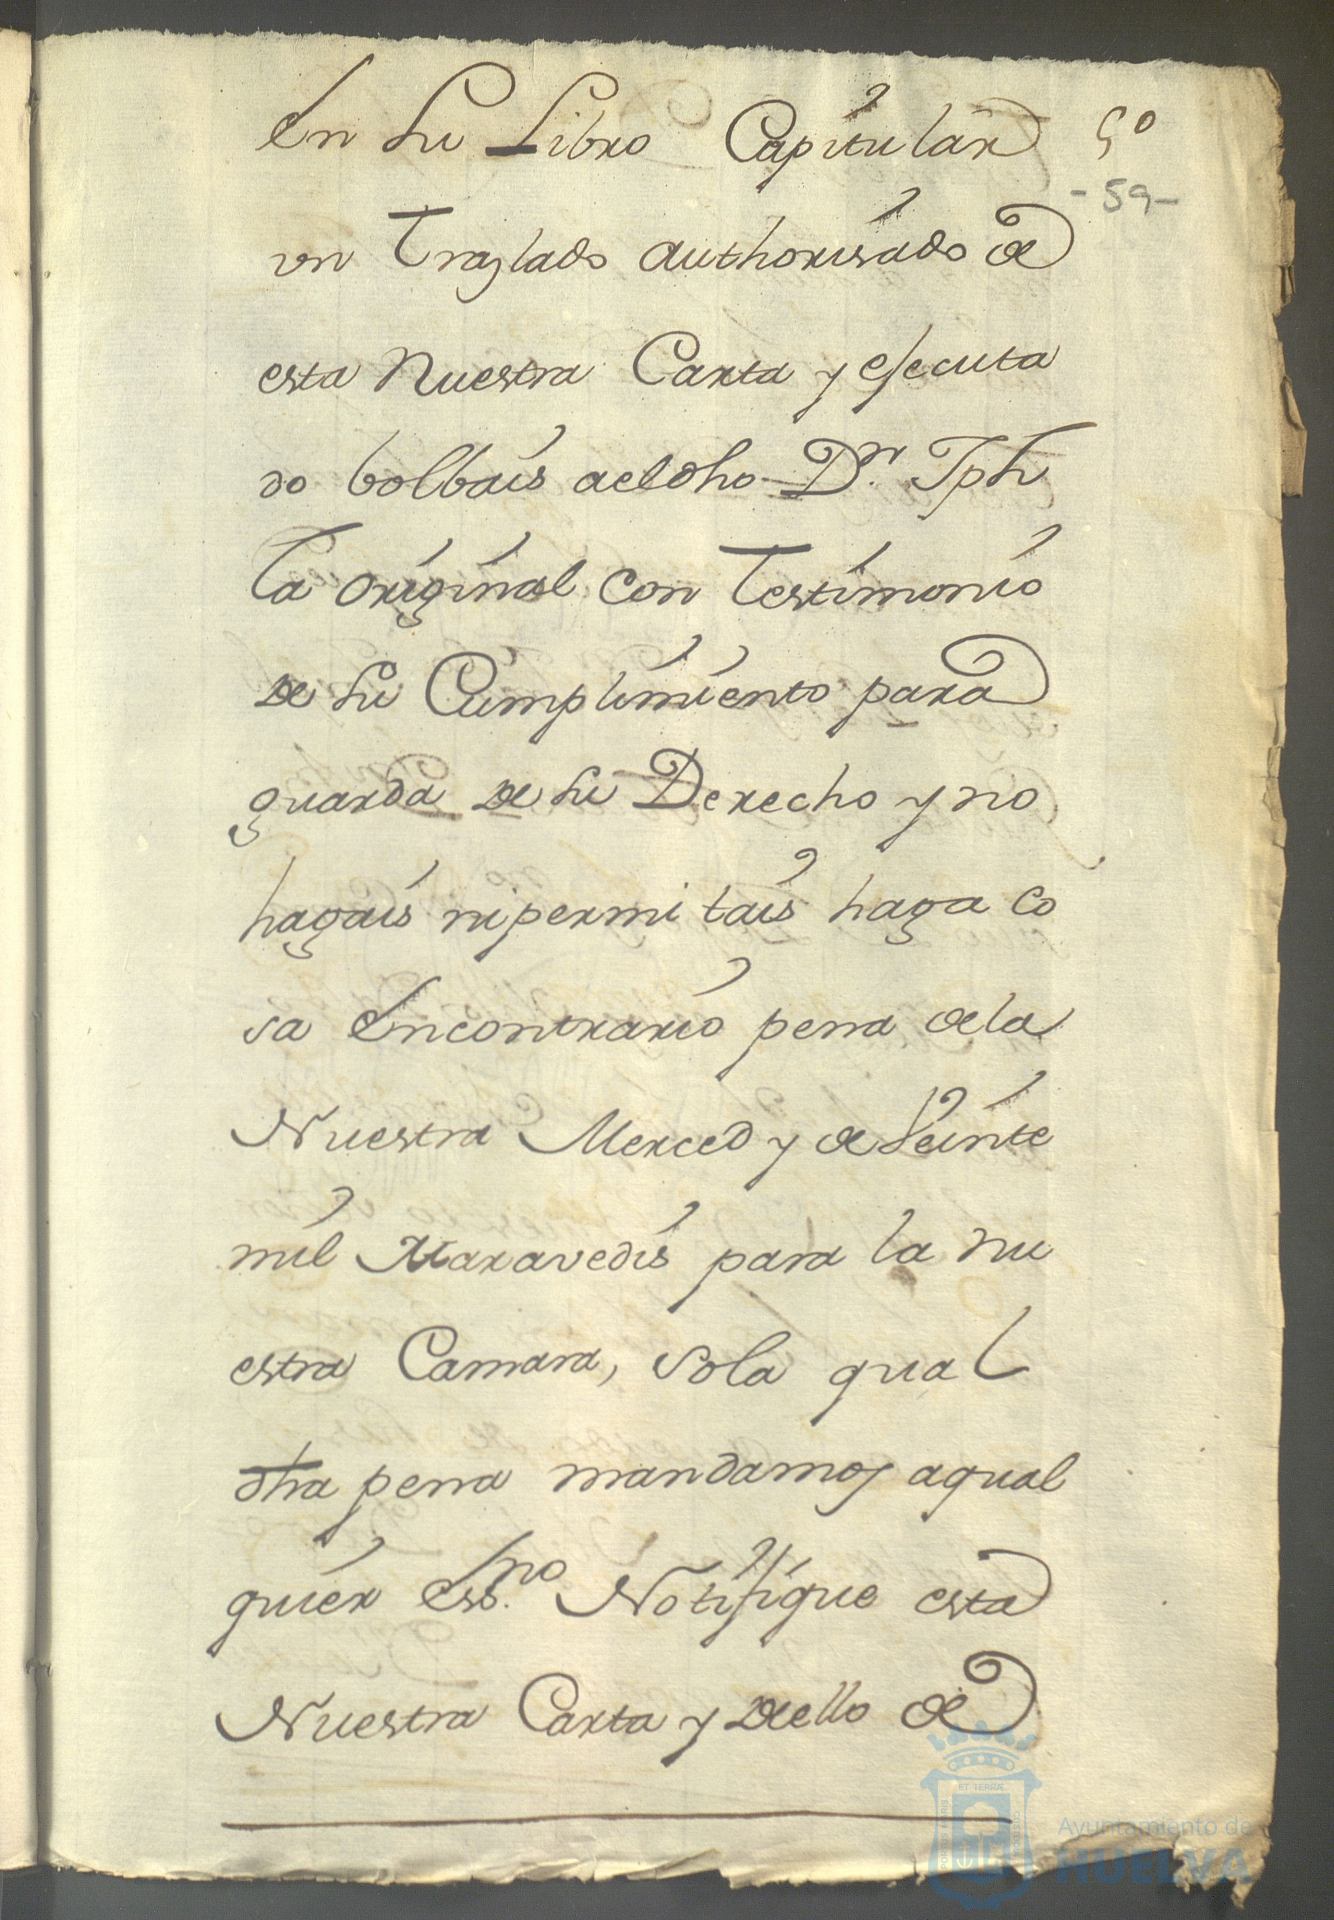 En su Libro Capitular 5º
-59-
un Traslado authorisado de
esta Nuestra Carta y ejecuta
do bolbais aeldho Dn. Jph
la original con Testimonio
de su Cumplimiento para
guarda de su Derecho y no
hagais ni permitais haga co
sa Encontrario pena dela
Nuestra Merced y de Veinte
mil Maravedis para la nu
estra Camara, sola qual
dha pena mandamos aqual
quier essno. Notifique esta
Nuestra Carta y dello de
ET TERRÆ
Ayuntamiento de
HUELVA